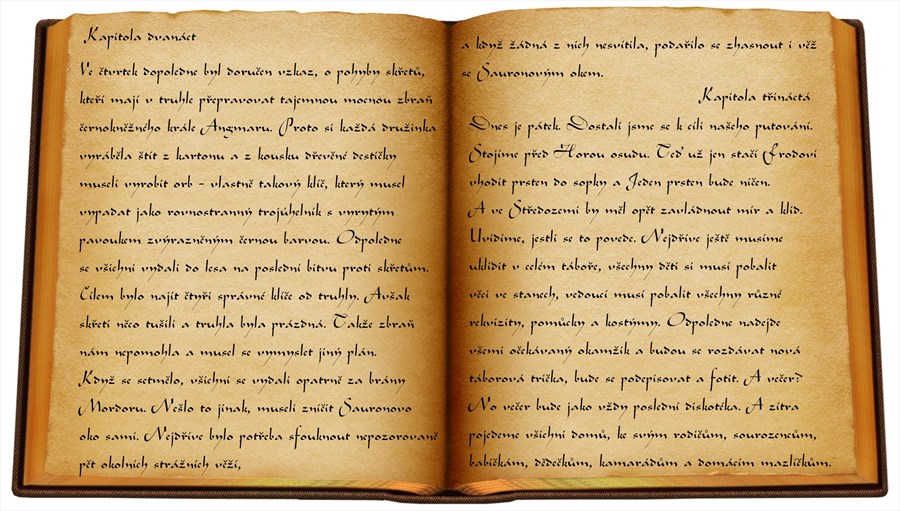 Kapitola dvanáct
Ve čtvrtek dopoledne byl doručen vzkaz, o pohybu skřetů,
kteří mají v truhle přepravovat tajemnou mocnou zbraň
černokněžného krále Angmaru. Proto si každá družinka
vyráběla štít z kartonu a z kousku dřevěné destičky
museli vyrobit orb - vlastně takový klíč, který musel
vypadat jako rovnostranný trojúhelník s vyrytým
pavoukem zvýrazněným černou barvou. Odpoledne
se všichni vydali do lesa na poslední bitvu proti skřetům.
Cílem bylo najít čtyři správné klíče od truhly. Avšak
skřeti něco tušili a truhla byla prázdná. Takže zbraň
nám nepomohla a musel se vymyslet jiný plán.
Když se setmělo, všichni se vydali opatrně za brány
Mordoru. Nešlo to jinak, museli zničit Sauronovo
oko sami. Nejdříve bylo potřeba sfouknout nepozorovaně
pět okolních strážních věží,
a když žádná z nich nesvítila, podařilo se zhasnout i věž
se Sauronovým okem.
Kapitola třináctá
Dnes je pátek. Dostali jsme se k cíli našeho putování.
Stojíme před Horou osudu. Teď už jen stačí Frodovi
vhodit prsten do sopky a Jeden prsten bude ničen.
A ve Středozemi by měl opět zavládnout mír a klid.
Uvidíme, jestli se to povede. Nejdříve ještě musíme
uklidit v celém táboře, všechny děti si musí pobalit
věci ve stanech, vedoucí musí pobalit všechny různé
rekvizity, pomůcky a kostýmy. Odpoledne nadejde
všemi očekávaný okamžik a budou se rozdávat nová
táborová trička, bude se podepisovat a fotit. A večer?
No večer bude jako vždy poslední diskotéka. A zítra
pojedeme všichni domů, ke svým rodičům, sourozencům,
babičkám, dědečkům, kamarádům a domácím mazlíčkům.